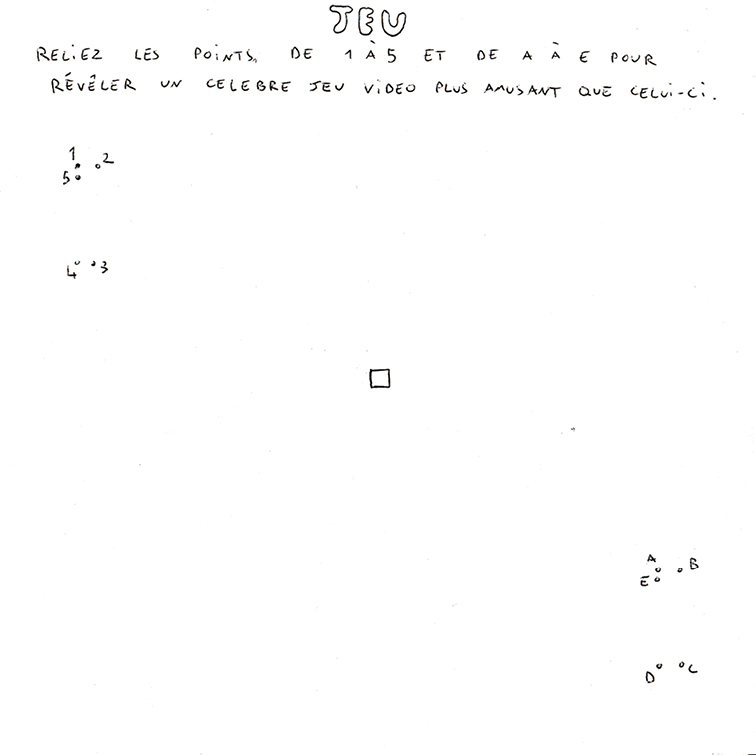 JEU
RELIEZ LES POINTS, DE 1 À 5 ET DE A À E POUR
RÉVÊLER UN CELEBRE JEU VIDEO PLUS AMUSANT QUE CELUI-CI.
1 2
5
4 3
A B
E
D C